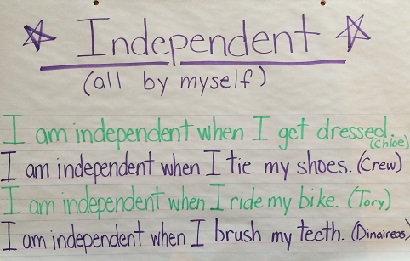 Independent
(all by myself)
I am independent when I get dressed.
(Chloe)
I am independent when I tie my shoes. (Crew)
I am independent when I ride my bike. (Tory)
I am independent when I brush my teeth. (Dinaireas)